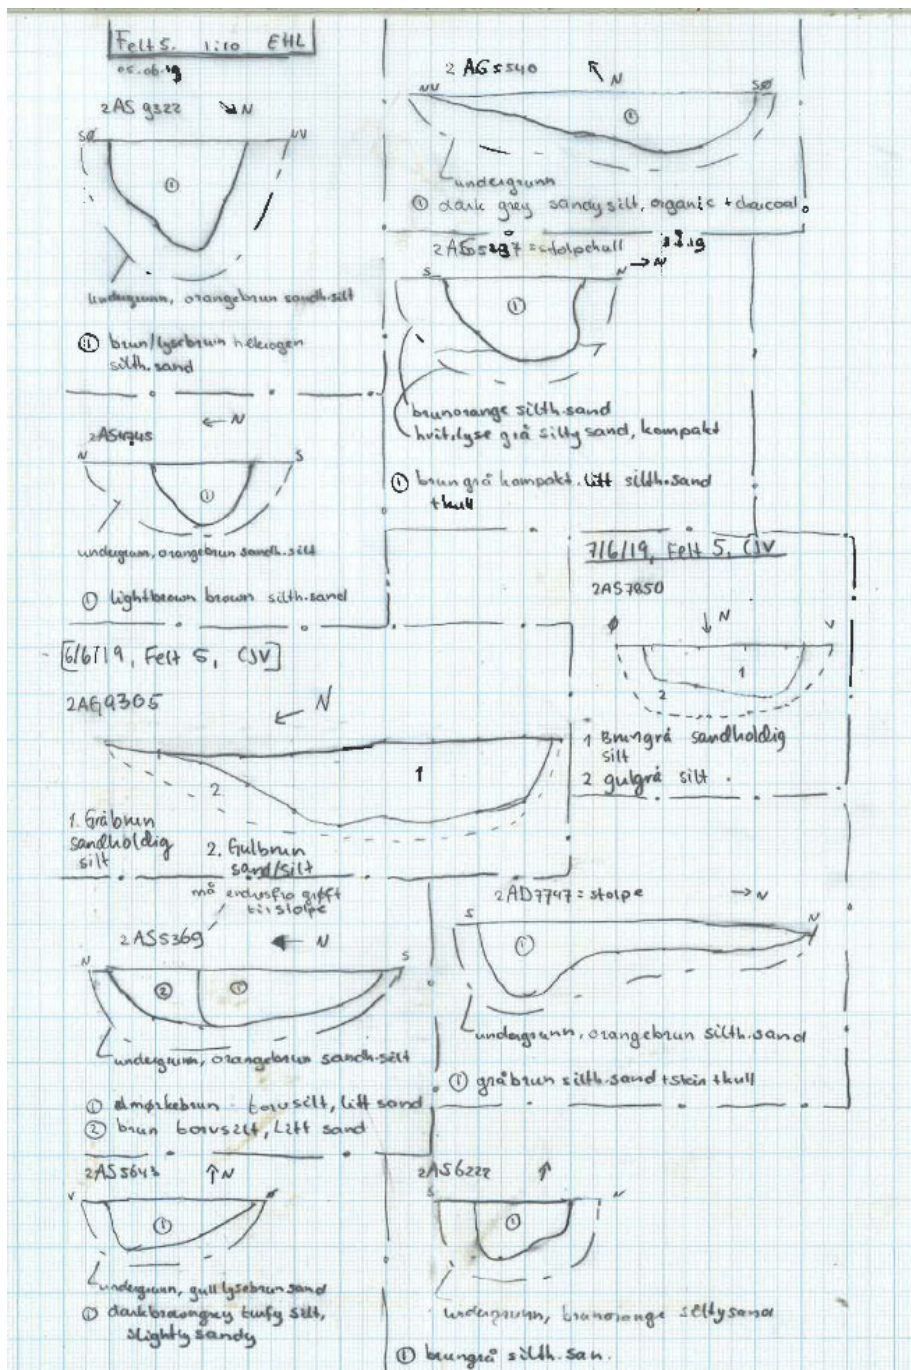 Felt 5. 1:10 EHL
05.06.19
2AS 9322 N
SØ NV
1
undergrunn, orangebrun sandh.silt
1 brun/lysebrun heterogen
silth.sand
2AG5540 N
NV SØ
1
undergrunn
1 dark grey sandy silt, organic + charcoal
= stolpehull
S N → N
1
brunorange silth.sand
hvit.lyse grå silty sand, kompakt
1 brungrå kompakt. litt silth.sand
+ kull
← N
N S
1
undergrunn, orangebrun sandh.silt
1 lightbrown brown silth.sand
7/6/19, Felt 5, CJV
2AS7850
N
Ø V
1
2
1 Brungrå sandholdig
silt
2 gulgrå silt .
[6/6/19, Felt 5, CJV]
2AG9305 N
1
2.
1. Gråbrun
sandholdig
silt
2. Gulbrun
sand/silt
må grøft
til stolpe
2AS5369 N
N S
2 1
undergrunn, orangebrun sandh.silt
1 mørkebrun torvsilt, litt sand
2 brun torvsilt, Litt sand
2AD7747 = stolpe → N
S N
1
undergrunn, orangebrun silth.sand
1 gråbrun silth.sand + stein + kull
2AS5643 ↑N
V Ø
1
undergrunn, gull lysebrun sand
1 darkbrowngrey turfy silt,
slightly sandy
2AS6222 ↑
S N
1
undergrunn, brunorange siltysand
1 brungrå silth.san.